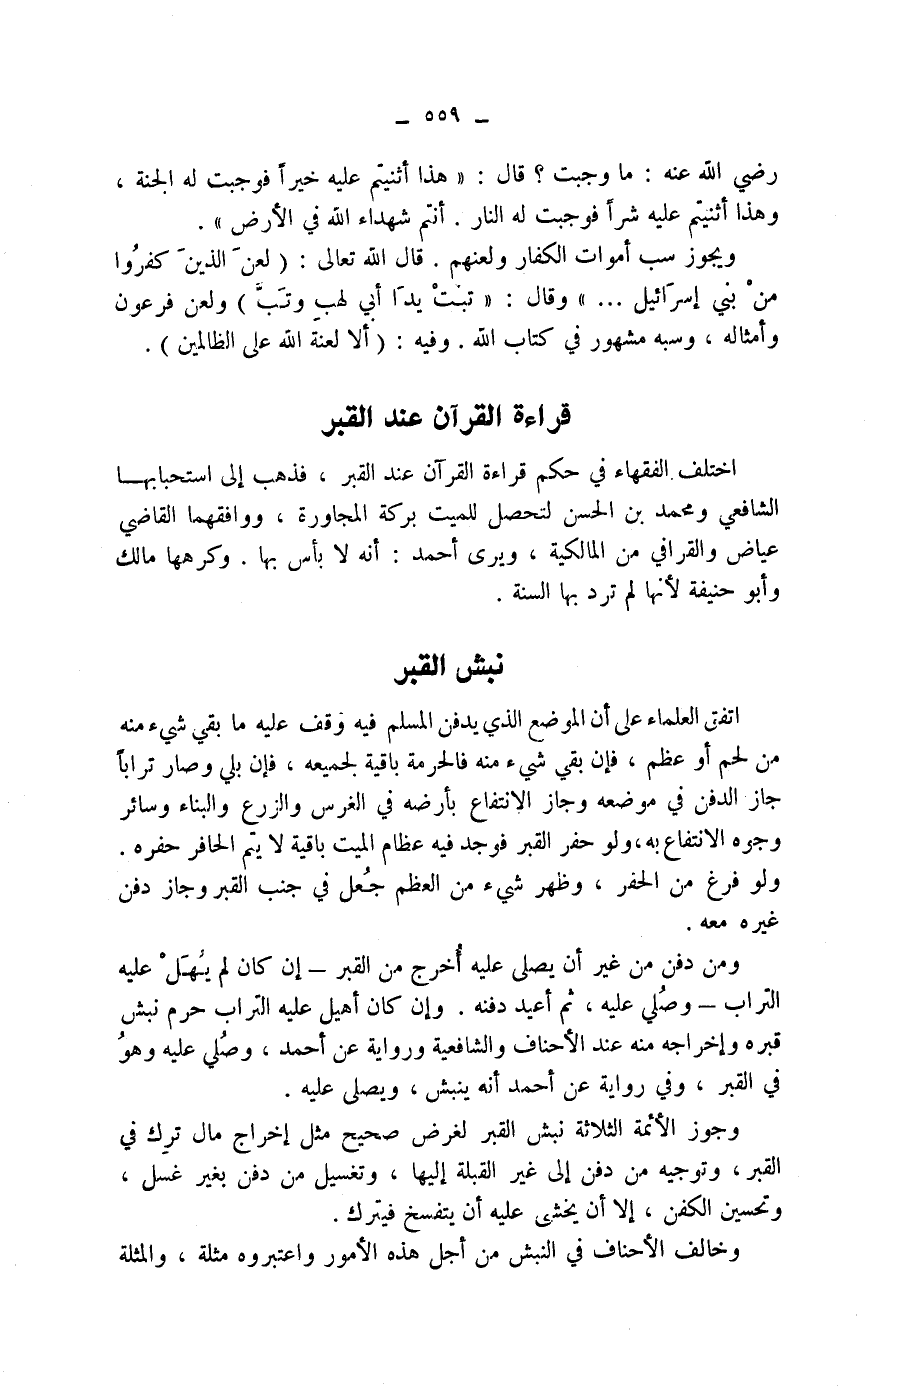 ـ ٥٥٩ ـ
رضي الله عنه : ما وجبت ؟ قال : « هذا أثنيتم عليه خيراً فوجبت له الجنة ،
وهذا أثنيتم عليه شراً فوجبت له النار . أنتم شهداء الله في الأرض » .
ويجوز سب أموات الكفار ولعنهم . قال الله تعالى : ( لعنَ الذينَ كفرُوا
منْ بني إسرَائيل ... » وقال : « تبتْ يدَا أبي لهبِ وتَبَّ ) ولعن فرعون
وأمثاله ، وسبه مشهور في كتاب الله . وفيه : ( ألا لعنةُ الله على الظالمين ) .
قراءة القرآن عند القبر
اختلف الفقهاء في حكم قراءة القرآن عند القبر ، فذهب إلى استحبابهـــا
الشافعي ومحمد بن الحسن لتحصل للميت بركة المجاورة ، ووافقهما القاضي
عياض والقرافي من المالكية ، ويرى أحمد : أنه لا بأس بها . وكرهها مالك
وأبو حنيفة لأنها لم ترد بها السنة .
نبش القبر
اتفق العلماء على أن الموضع الذي يدفن المسلم فيه وَقف عليه ما بقي شيء منه
من لحم أو عظم ، فإن بقي شيء منه فالحرمة باقية لجميعه ، فإن بلي وصار تراباً
جاز الدفن في موضعه وجاز الانتفاع بأرضه في الغرس والزرع والبناء وسائر
وجوه الانتفاع به،ولو حفر القبر فوجد فيه عظام الميت باقية لا يتم الحافر حفره .
ولو فرغ من الحفر ، وظهر شيء من العظم جُعل في جنب القبر وجاز دفن
غيره معه .
ومن دفن من غير أن يصلى عليه أُخرج من القبر – إن كان لم يُهَلْ عليه
التراب – وصُلي عليه ، ثم أعيد دفنه . وإن كان أهيل عليه التراب حرم نبش
قبره وإخراجه منه عند الأحناف والشافعية ورواية عن أحمد ، وصُلي عليه وهوُ
في القبر ، وفي رواية عن أحمد أنه ينبش ، ويصلى عليه .
وجوز الأئمة الثلاثة نبش القبر لغرض صحيح مثل إخراج مال ترك في
القبر ، وتوجيه من دفن إلى غير القبلة إليها ، وتغسيل من دفن بغير غسل ،
وتحسين الكفن ، إلا أن يخشى عليه أن يتفسخ فيترك .
وخالف الأحناف في النبش من أجل هذه الأمور واعتبروه مثلة ، والمثلة